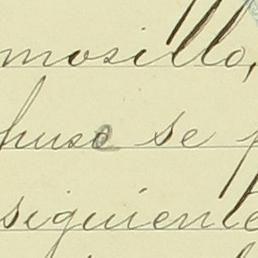 mosillo,
huso se
siguiente